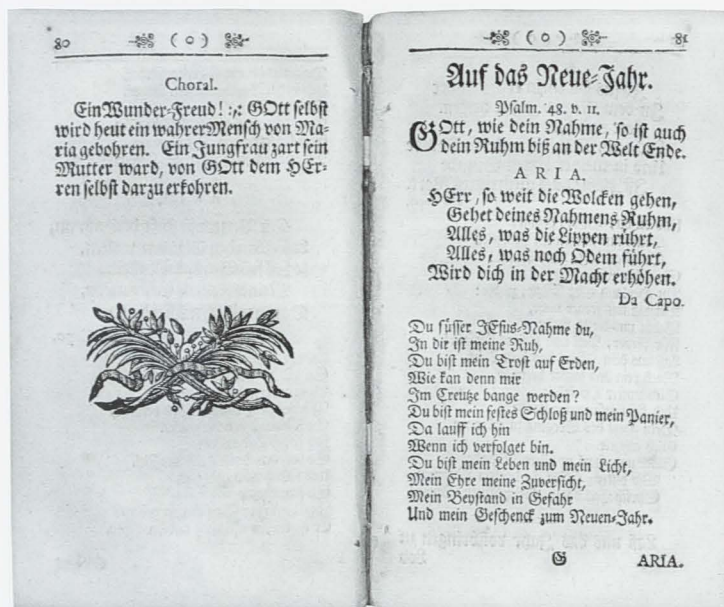 80 ( o )
Choral.
Ein Wunder-Freud! :,: GOtt selbst
wird heut ein wahrer Mensch von Ma-
ria gebohren. Ein Jungfrau zart sein
Mutter ward, von GOtt dem HEr-
ren selbst darzu erkohren.
( o ) 81
Auf das Neue-Jahr.
Psalm. 48. v. 11.
GOtt, wie dein Nahme, so ist auch
dein Ruhm biß an der Welt Ende.
ARIA.
HErr, so weit die Wolcken gehen,
Gehet deines Nahmens Ruhm,
Alles, was die Lippen rührt,
Alles, was noch Odem führt,
Wird dich in der Macht erhöhen.
Da Capo.
Du süsser JEsus-Nahme du,
In dir ist meine Ruh,
Du bist mein Trost auf Erden,
Wie kan denn mir
Im Creutze bange werden?
Du bist mein festes Schloß und mein Panier,
Da lauff ich hin
Wenn ich verfolget bin.
Du bist mein Leben und mein Licht,
Mein Ehre meine Zuversicht,
Mein Beystand in Gefahr
Und mein Geschenck zum Neuen-Jahr.
G ARIA.